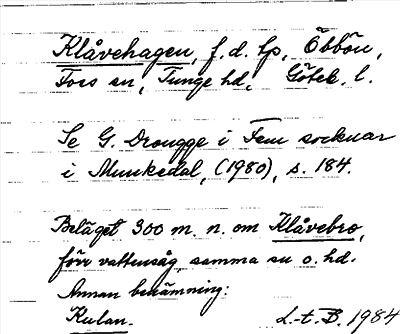 Klåvehagen, f.d. lp, Öbbön,
Foss sn, Tunge hd, Göteb. l.
Se G. Drougge i Fem socknar
i Munkedal, (1980), s. 184.
Beläget 300 m. n. om Klåvebro,
förr vattensåg, samma sn o. hd.
Annan benämning:
Kulan.
L-t-B, 1984